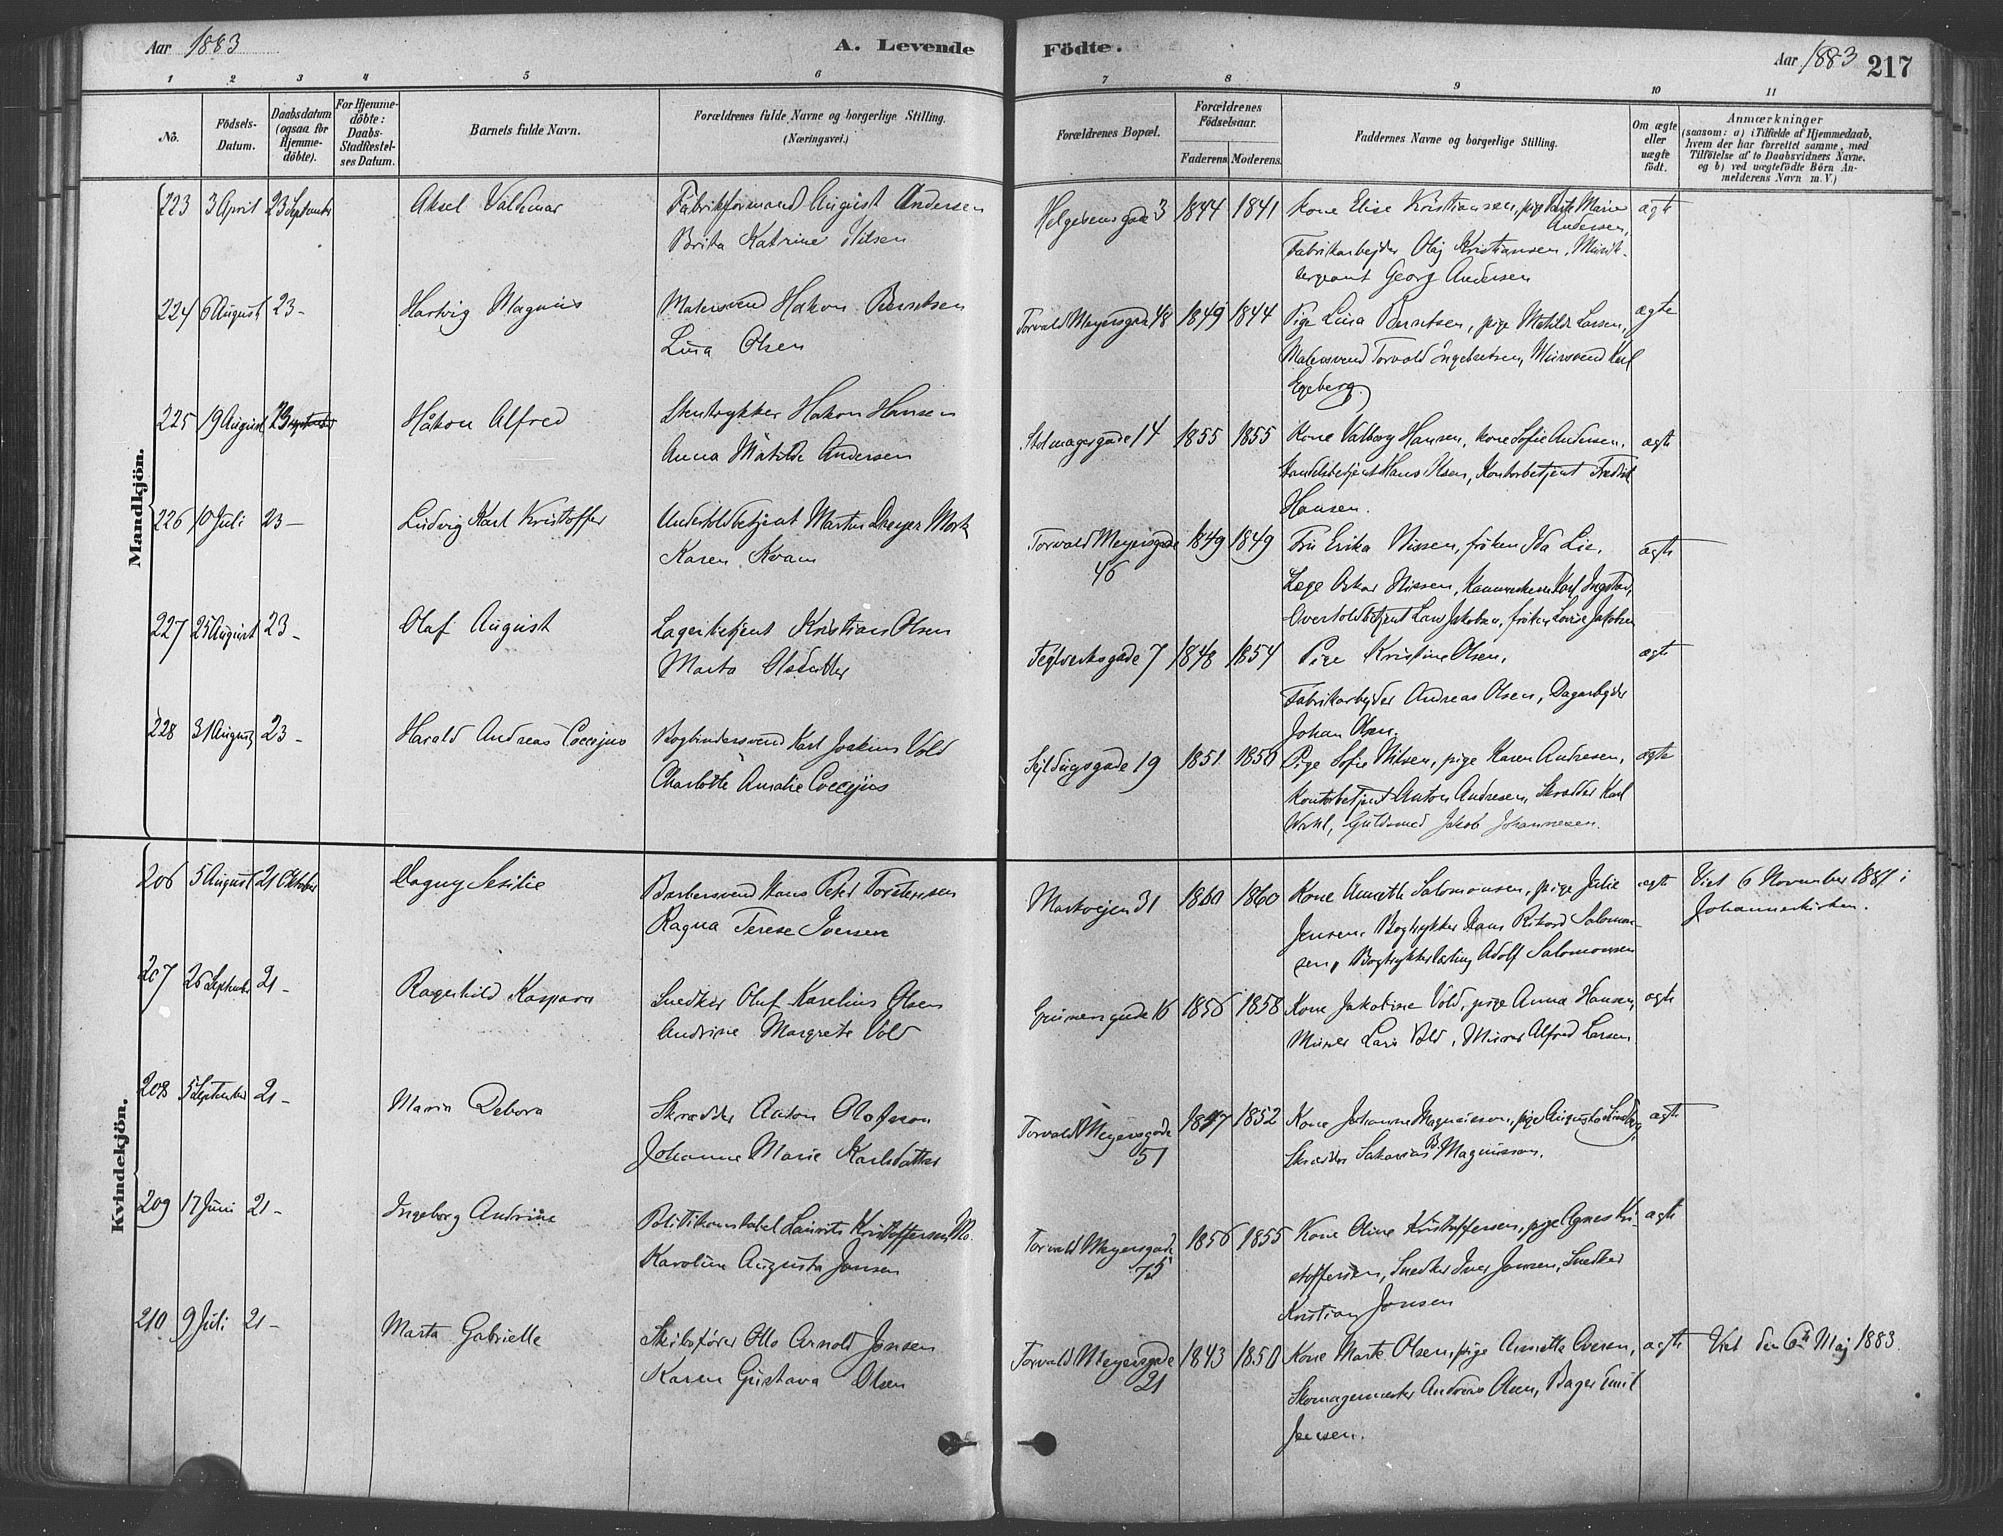 Aar 1883
A. Levende
Födte.
Aar 1883
217
1 2 3 4 5 6
7 8 9 10 11
No.
Födsels-
Datum.
Daabsdatum
(ogsaa for
Hjemme-
döbte).
For Hjemme-
döbte:
Daabs-
Stadfæstel-
ses Datum.
Barnets fulde Navn.
Forældrenes fulde Navne og borgerlige Stilling.
(Næringsvei.)
Forældrenes Bopæl.
Forældrenes
Födselsaar.
Faderens.
Moderens.
Faddernes Navne og borgerlige Stilling.
Om ægte
eller
uægte
födt.
Anmærkninger
(saasom: a) i Tilfælde af Hjemmedaab,
hvem der har forrettet samme, med
Tilföielse af to Daabsvidners Navne.
og b) ved uægtefödte Börn An-
melderens Navn m. V.)
Mandkjön.
223 3 April 23 September Aksel Valdemar Fabrikformand August Andersen
Brita Katrine Nilsen
Helgesensgade 3 1844 1841 Kone Elise Kristiansen, pige Marie ægte
Andersen,
Fabrikarbejder Olaj Kristiansen, Musik-
sergeant Georg Andersen
224 6 August 23 - Hartvig Magnus Malersvend Hakon Berntsen
Lina Olsen
Torvald Meyersgade 48 1849 1844 Pige Lina Berntsen, pige Matilde Larsen, ægte
Malersvend Torvald Ingebretsen, Mursvend Karl
Egeberg.
225 19 August 23 September Håkon Alfred Stentrykker Hakon Hansen
Anna Matilde Andersen
Stolmagergade 14 1855 1855 Kone Valborg Hansen, kone Sofie Andersen, ægte
Handelsbetjent Hans Olsen, Kontorbetjent Fredrik
Hansen.
226 10 Juli 23 - Ludvig Karl Kristoffer Undertoldbetjent Martin Dreyer Mork
Karen Kvam
Torvald Meyersgade 1849 1849 Fru Erika Nissen, fröken Ida Lie, ægte
46
Læge Oskar Nissen, Karl Ingstad,
Overtoldbetjent Lars Jakobsen, fröken Lovise Jakobsen
227 25 August 23 - Olaf August Lagerbetjent Kristian Olsen
Marta Olsdatter
Teglverksgade 7 1848 1854 Pige Kristine Olsen, ægte
Fabrikarbejder Andreas Olsen, Dagarbejder
Johan Olsen.
228 31 August 23 - Harald Andreas Coccejus Bogbindersvend Karl Joakim Vold
Charlotte Amalie Coccejus
Seildugsgade 19 1851 1850 Pige Sofie Nilsen, pige Karen Andresen, ægte
Kontorbetjent Anton Andresen, Skrædder Karl
Guldsmed Jakob Johannesen.
Kvindekjön.
206 5 August 21 Oktober Dagny Sesilie Barbersvend Hans Petter Torstensen
Ragna Terese Iversen
Markvejen 31 1860 1860 Kone Annette Salomonsen, pige Julie ægte Viet 6 November 1881 i
Jensen, Bogtrykker Hans Rikard Salomon- Johanneskirken.
sen, Bogtrykkerlærling Adolf Salomonsen
207 26 September 21 - Ragnhild Kaspara Snedker Oluf Karelius Olsen
Andrine Margrete Vold
Grünersgade 16 1856 1858 Kone Jakobine Vold, pige Anna Hansen, ægte
Murer Lars Vold, Murer Alfred Larsen
208 5 September 21 - Maria Debora Skrædder Anton Olofsson
Johanne Marie Karlsdatter
Torvald Meyersgade 1847 1852 Kone Johanne Magnusson, pige Augusta ægte
51
Skrædder Sakarias B. Magnusson.
209 17 Juni 21 - Ingeborg Andrine Politikonstabel Laurits Kristoffersen Mo
Karoline Augusta Jansen
Torvald Meyersgade 1856 1855 Kone Oline Kristoffersen, pige Agnes Kri- ægte
75
stoffersen, Snedker Iver Jansen, Snedker
Kristian Jansen
210 9 Juli 21 - Marta Gabrielle Skibsförer Otto Arnold Jansen
Karen Gustava Olsen
Torvald Meyersgade 1843 1850 Kone Marte Olsen, pige Annette Iversen, ægte Viet den 6te Maj 1883.
21
Skomagermester Andreas Olsen, Bager Emil
Jensen.